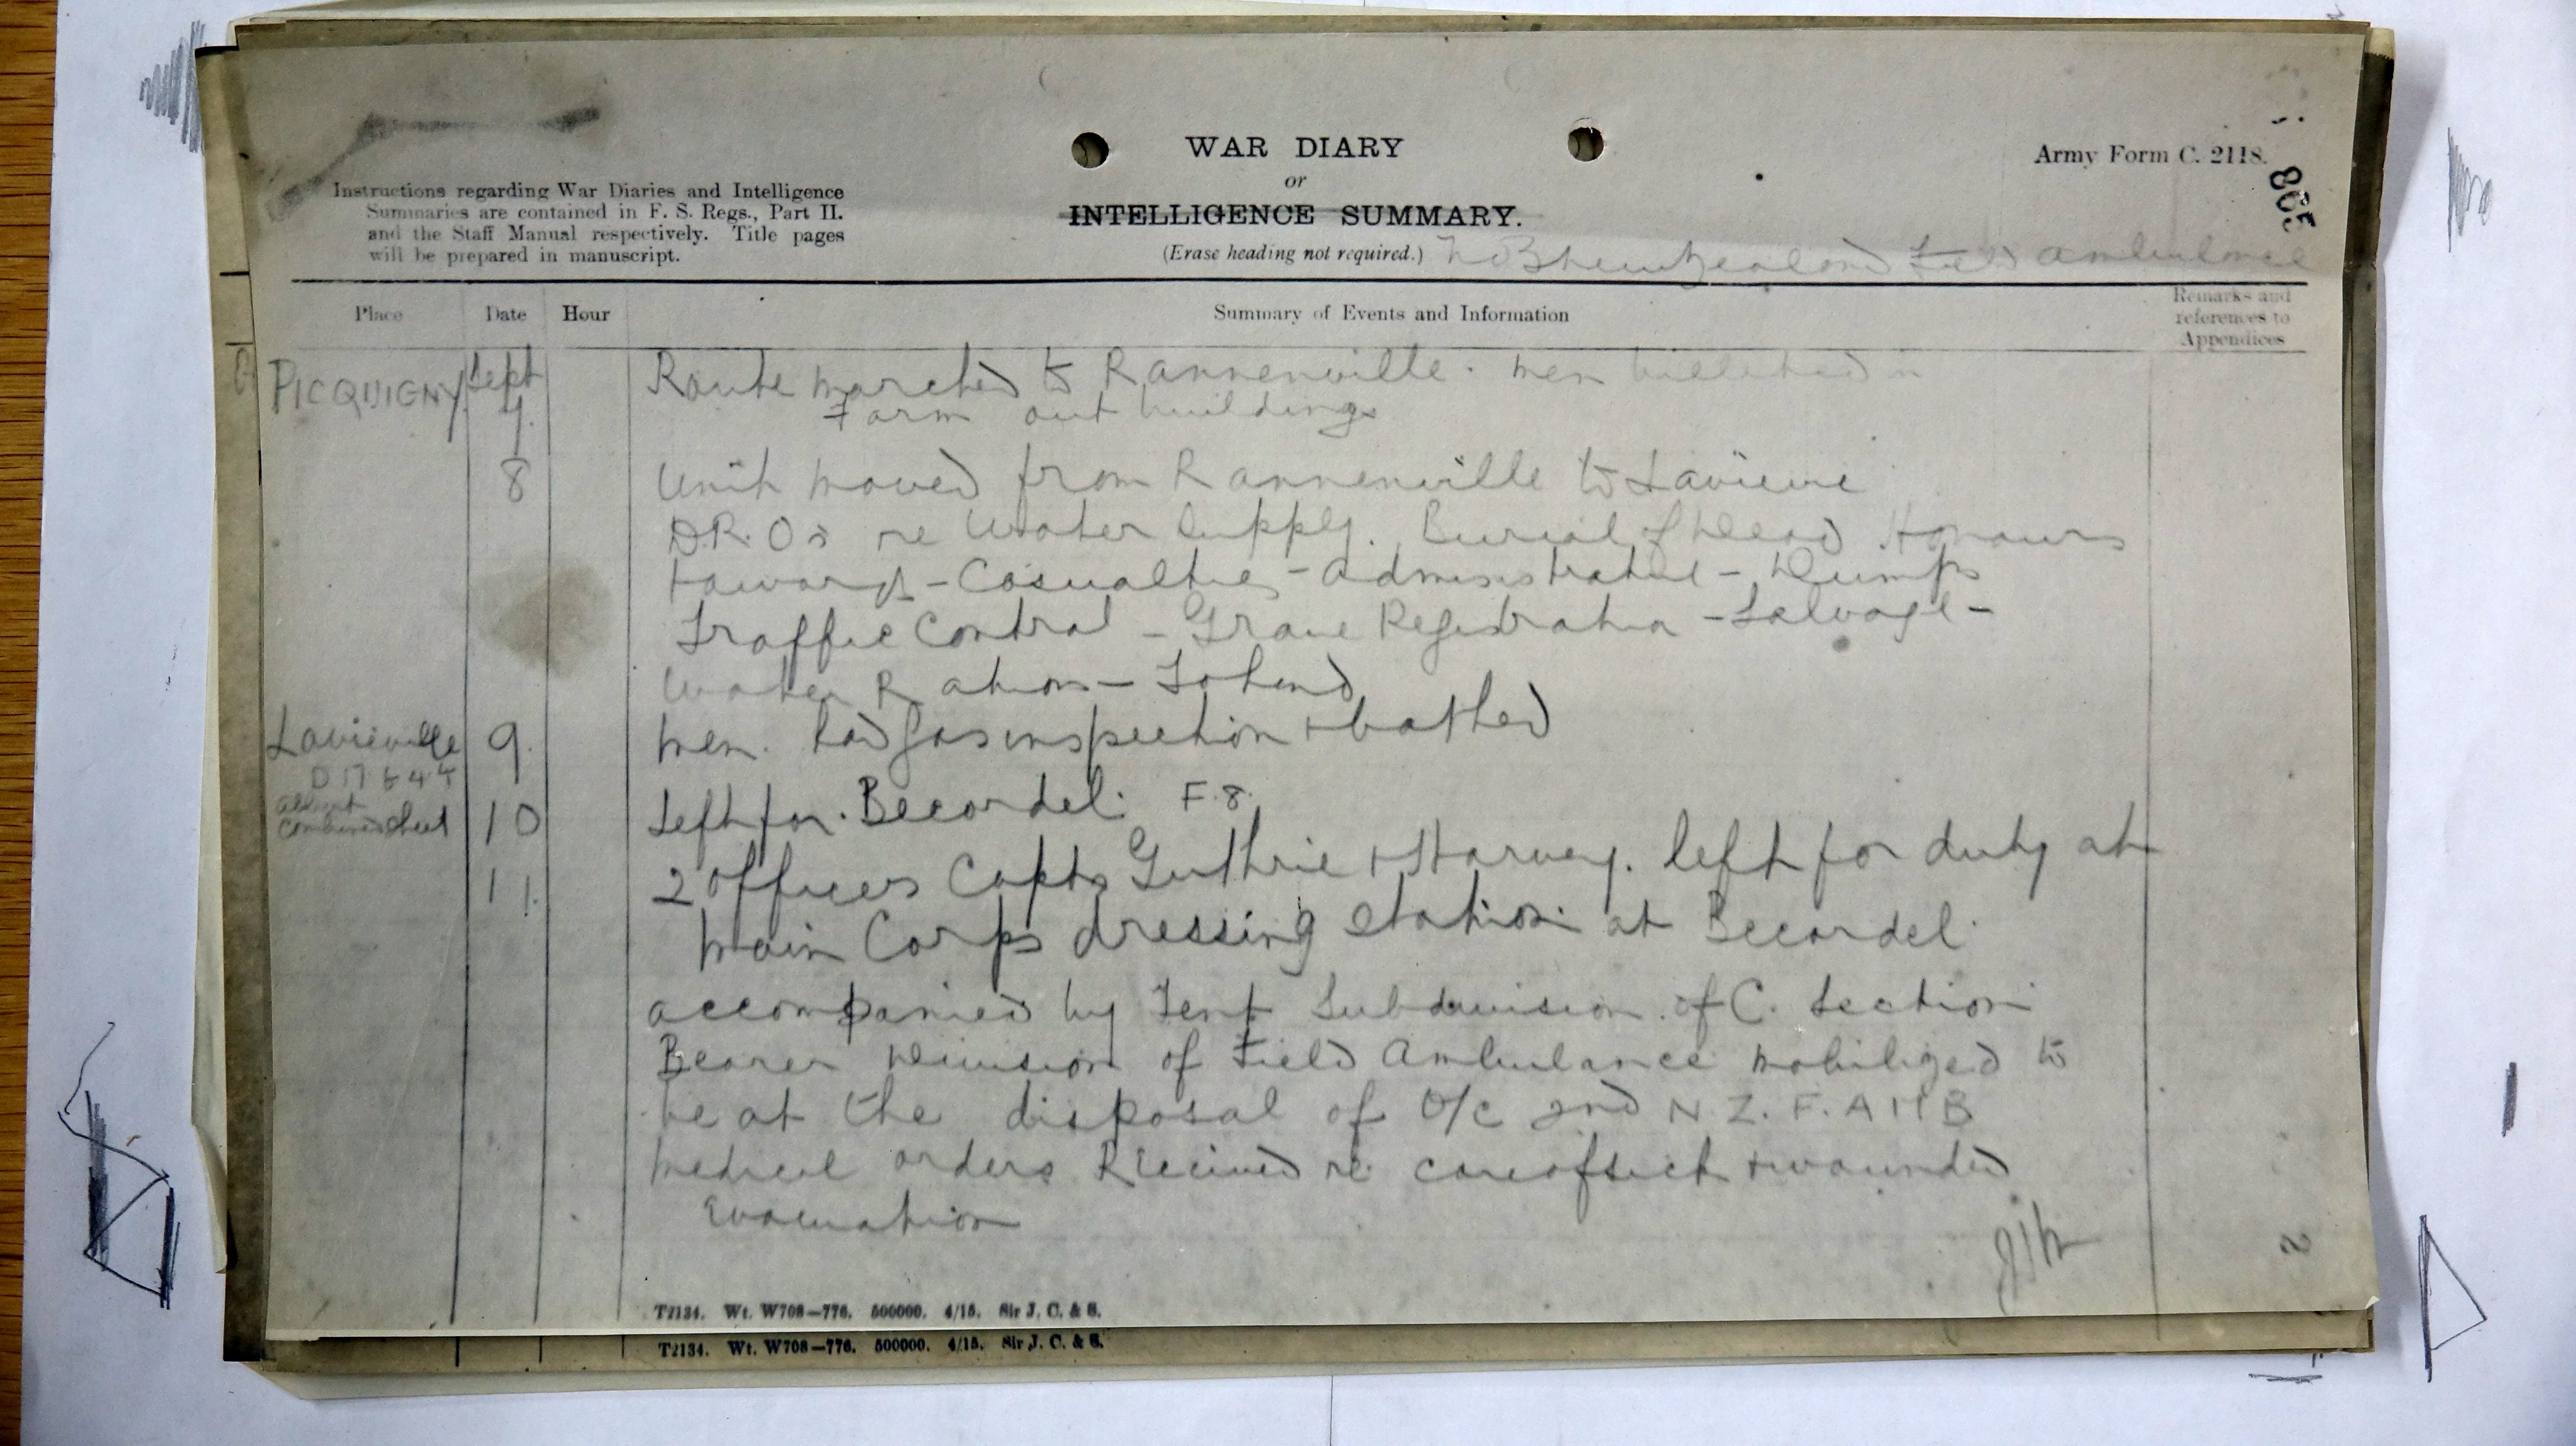 WAR DIARY
or
INTELLIGENCE SUMMARY.
(Erase heading not required.)
Army Form C. 2118.
Instructions regarding War Diaries and Intelligence
Summaries are contained in F. S. Regs., Part II.
and the Staff Manual respectively. Title pages
will be prepared in manuscript.
No 3 New Zealand Field Ambulance
Place Date Hour Summary of Events and Information Remarks and
references to
Appendices
PICQUIGNY Sept Route marched to Rannenville. Men billeted in
7. Farm out buildings
8 Unit moved from Rannenville to Lavieville
D.R.Os re Water Supply. Burial of Dead Honours
+ awards - Casualties - administrative - Dumps
Traffic Control - Grave Registration - Salvage -
Water Rations -
Lavieville 9. Men had gas inspection + bathed
D 17
Albert
Combined Sheet 10 Left for Becordel. F.8.
11. 2 officers Capts Guthrie + Harvey. left for duty at
Main Corps dressing station at Becordel.
accompanied by Tent Subdivision of C. Section
Bearer Division of Field Ambulance mobilized to
be at the disposal of O/c 2nd N.Z.F.AMB
Medical orders Received re care of sick + wounded
Evacuation
2
T2134. Wt. W708—776. 500000. 4/15. Sir J. C. & S.
T2134. Wt. W708—776. 500000. 4/15. Sir J. C. & S.